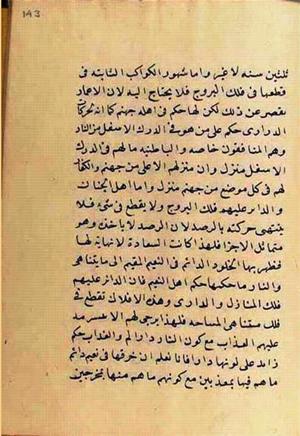 143
ثلثين سنه لا غير واما شهور الكواكب الثابته فى
قطعها فى فلك البروج فلا يحتاج اليه لان الاعمار
تقصر عن ذلك لكن لها حكم فى اهل جهنم كما انه لحركات
الدرارى حكم على من هو فى الدرك الاسفل من النار
وهم المنافقون خاصه والباطنيه ما لهم فى الدرك
الاسفل منزل وان منزلهم الاعلى من جهنم والكفار
لهم فى كل موضع من جهنم منزل واما اهل الجنات
والدائر عليهم فلك البروج ولا يقطع فى شىء فلا
ينتهى حركته بالرصد لان الرصد لا ياخذه وهو
متماثل الاجزا فلهذا كانت السعادة لا نهاية لها
فظهر بها الخلود الدائم فى النعيم المقيم الى ما لا يتناهى
والنار ما حكمها حكم اهل النعيم فان الدائر عليهم
فلك المنازل والدرارى وهذه الافلاك تقطع فى
فلك متناهى المساحه فلهذا يرجى لهم ان لا يتسرمد
عليهم العذاب مع كون النار دار الم والعذاب حكم
زائد على كونها دارا فانا نعلم ان خزنتها فى نعيم دائم
ما هم فيها بمعذبين مع كونهم ما هم منها بمخرجين